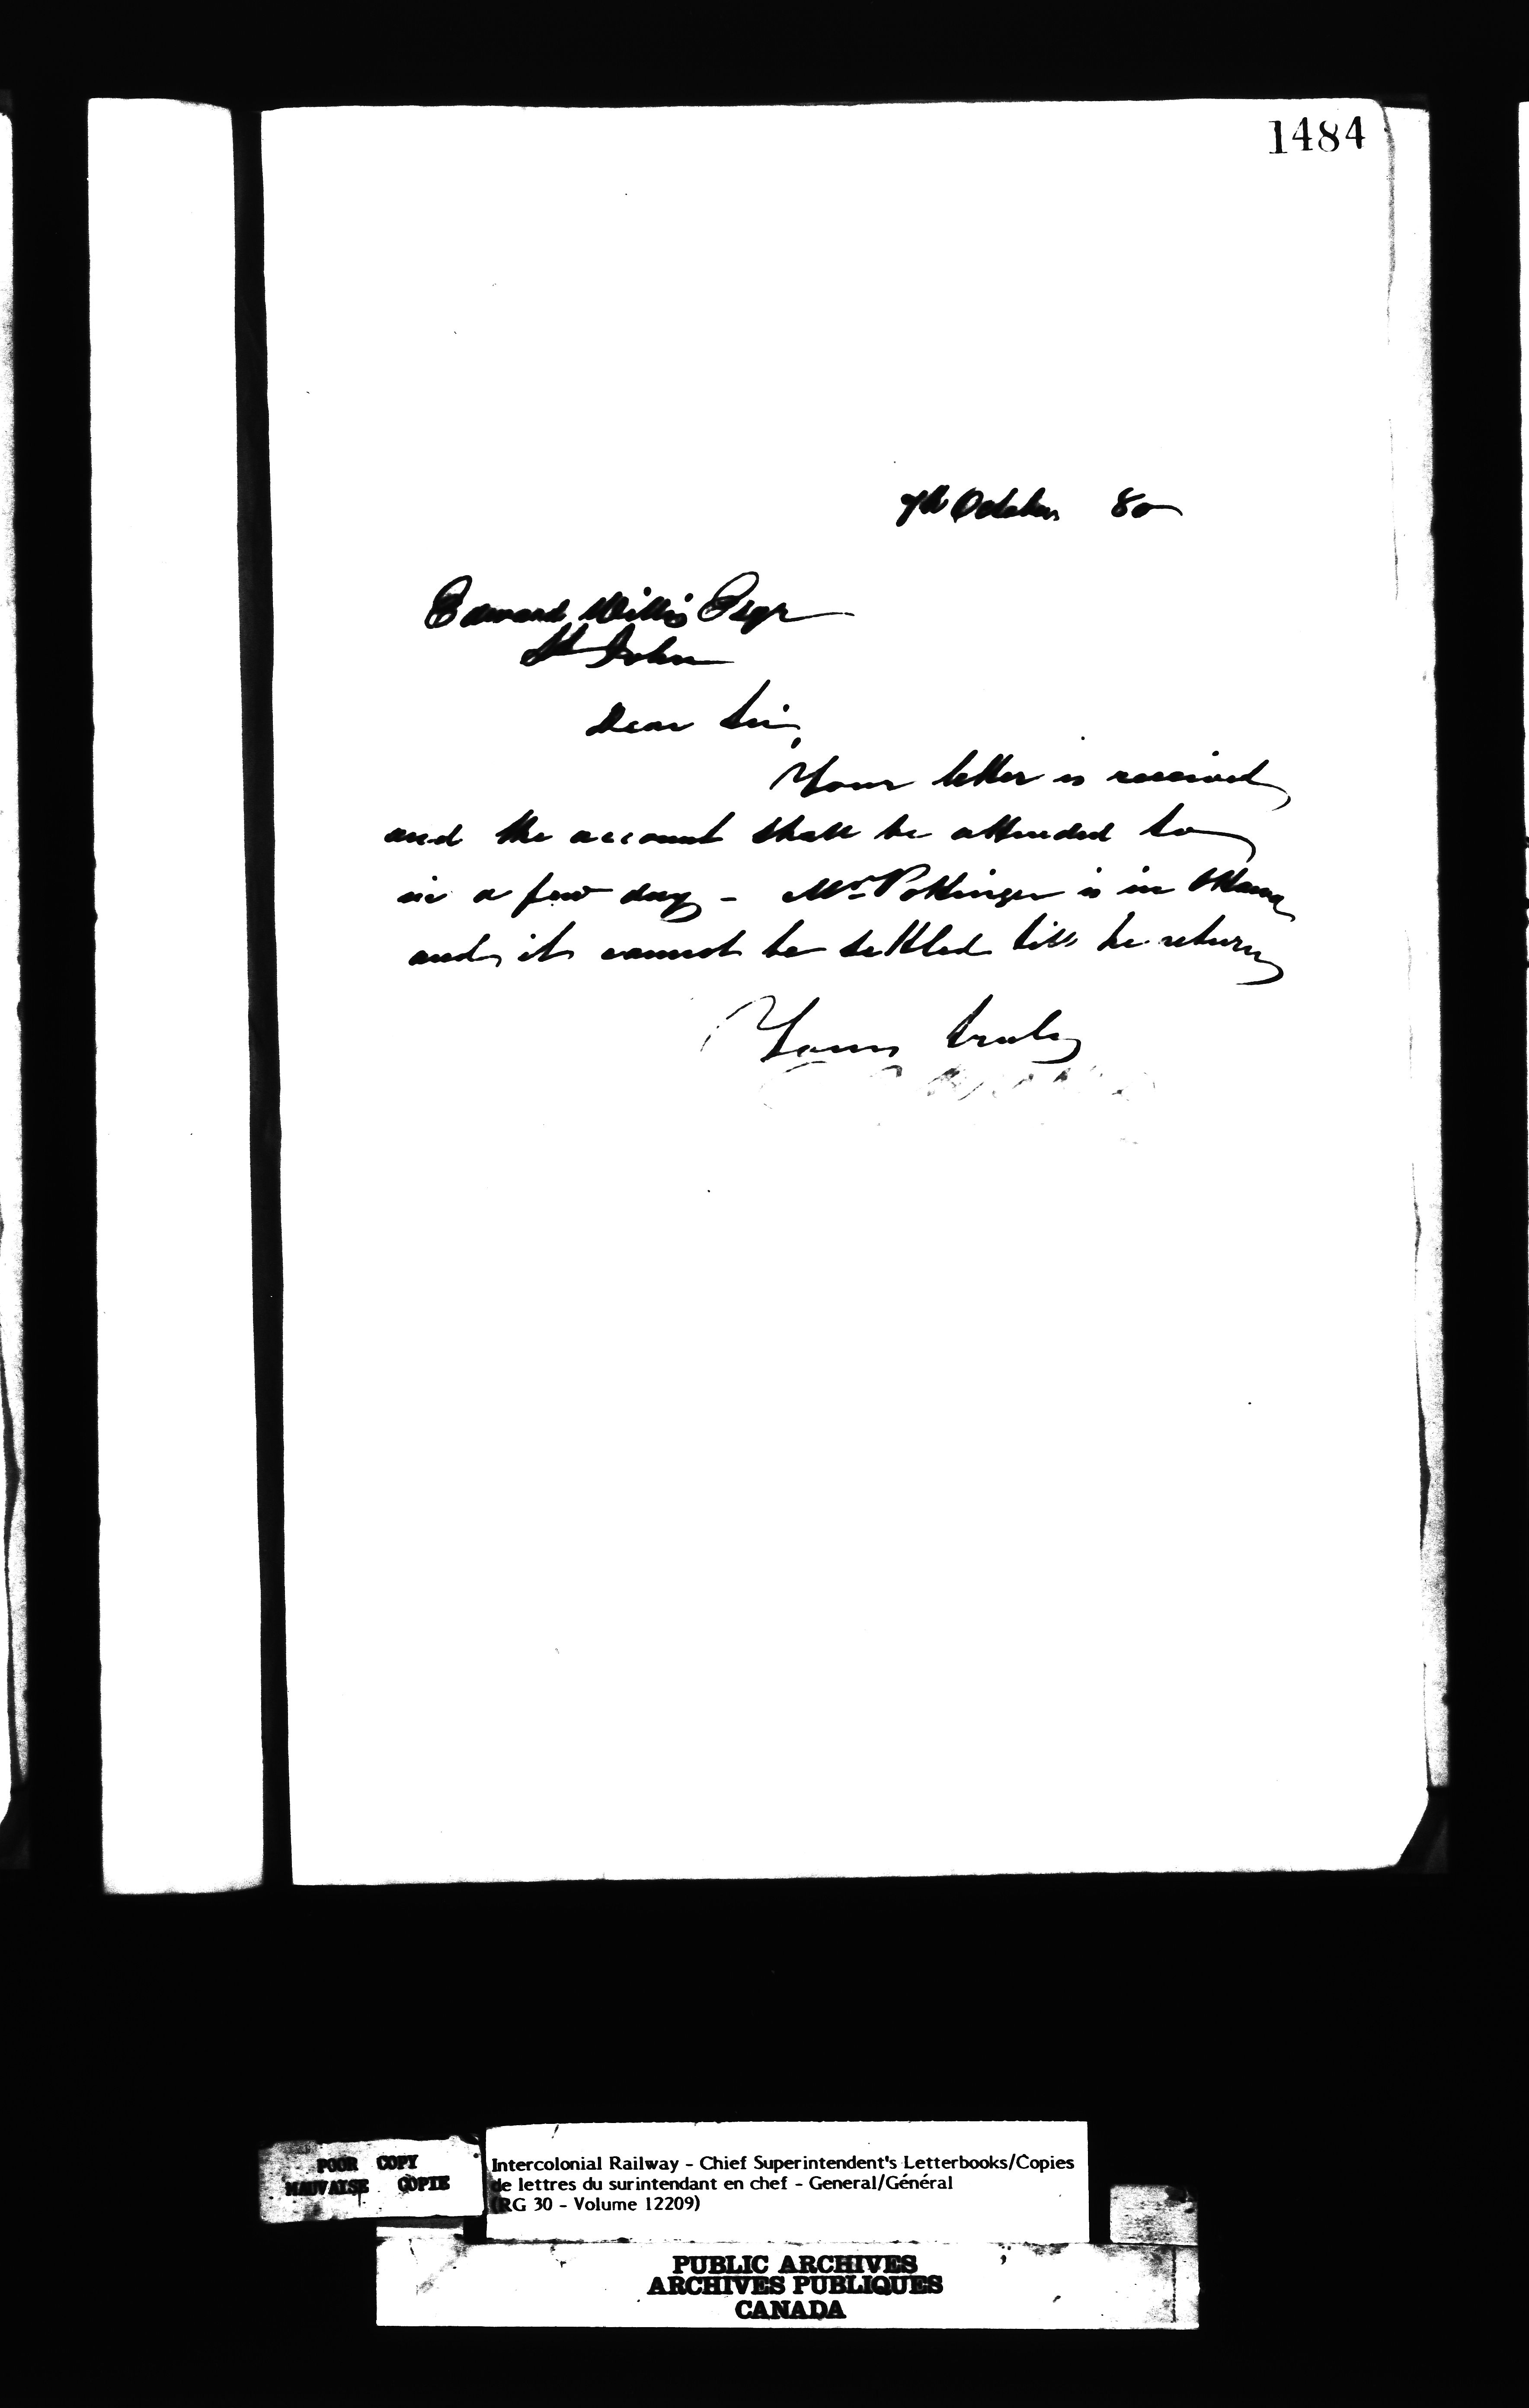 1484
7th October 80
Edward Willis Esqr
St John
Dear Sir,
Your letter is received
and the account shall be attended to
in a few days - Mr Pottinger is in Ottawa
and it cannot be settled till he returns
Yours truly
POOR COPY
MAUVAISE COPIE
Intercolonial Railway - Chief Superintendent's Letterbooks/Copies
de lettres du surintendant en chef - General/Général
(RG 30 - Volume 12209)
PUBLIC ARCHIVES
ARCHIVES PUBLIQUES
CANADA